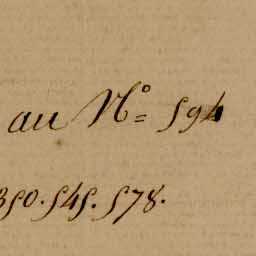 au N° = 594
350. 545. 578.